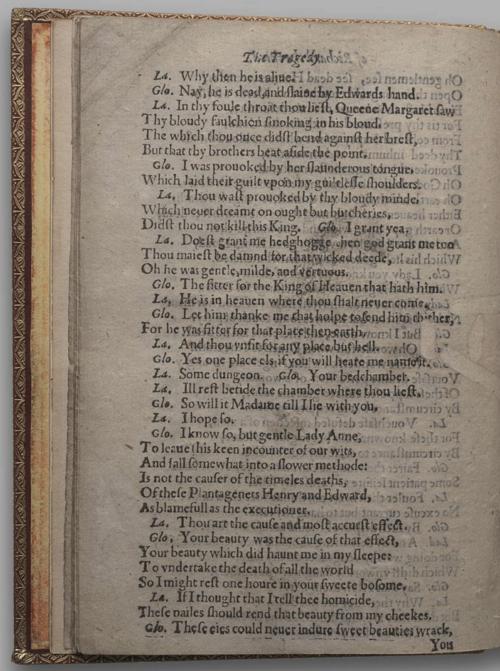 The Tragedy
La. Why then he is aliue.
Glo. Nay, he is dead, and slaine by Edwards hand.
La. In thy foule throat thou liest, Queene Margaret saw
Thy bloudy faulchien smoking in his bloud,
The which thou once didst bend against her brest,
But that thy brothers beat aside the point.
Glo. I was prouoked by her slaunderous tongue,
Which laid their guilt vpon my guiltlesse shoulders.
La. Thou wast prouoked by thy bloudy minde,
Which neuer dreamt on ought but butcheries,
Didst thou not kill this King. Glo. I grant yea.
La. Doest grant me hedghogge then god grant me too
Thou maiest be damnd for that wicked deede,
Oh he was gentle, milde, and vertuous.
Glo. The fitter for the King of Heauen that hath him.
La. He is in heauen where thou shalt neuer come.
Glo. Let him thanke me that holpe to send him thither,
For he was fitter for that place then earth.
La. And thou vnfit for any place but hell.
Glo. Yes one place els if you will heare me name it.
La. Some dungeon. Glo. Your bedchamber.
La. Ill rest betide the chamber where thou liest.
Glo. So will it Madame till I lie with you.
La. I hope so.
Glo. I know so, but gentle Lady Anne,
To leaue this keen incounter of our wits,
And fall somewhat into a slower methode:
Is not the causer of the timeles deaths,
Of these Plantagenets Henry and Edward,
As blamefull as the executioner.
La. Thou art the cause and most accurst effect.
Glo. Your beauty was the cause of that effect,
Your beauty which did haunt me in my sleepe:
To vndertake the death of all the world
So I might rest one houre in your sweete bosome.
La. If I thought that I tell thee homicide,
These nailes should rend that beauty from my cheekes.
Glo. These eies could neuer indure sweet beauties wrack,
You